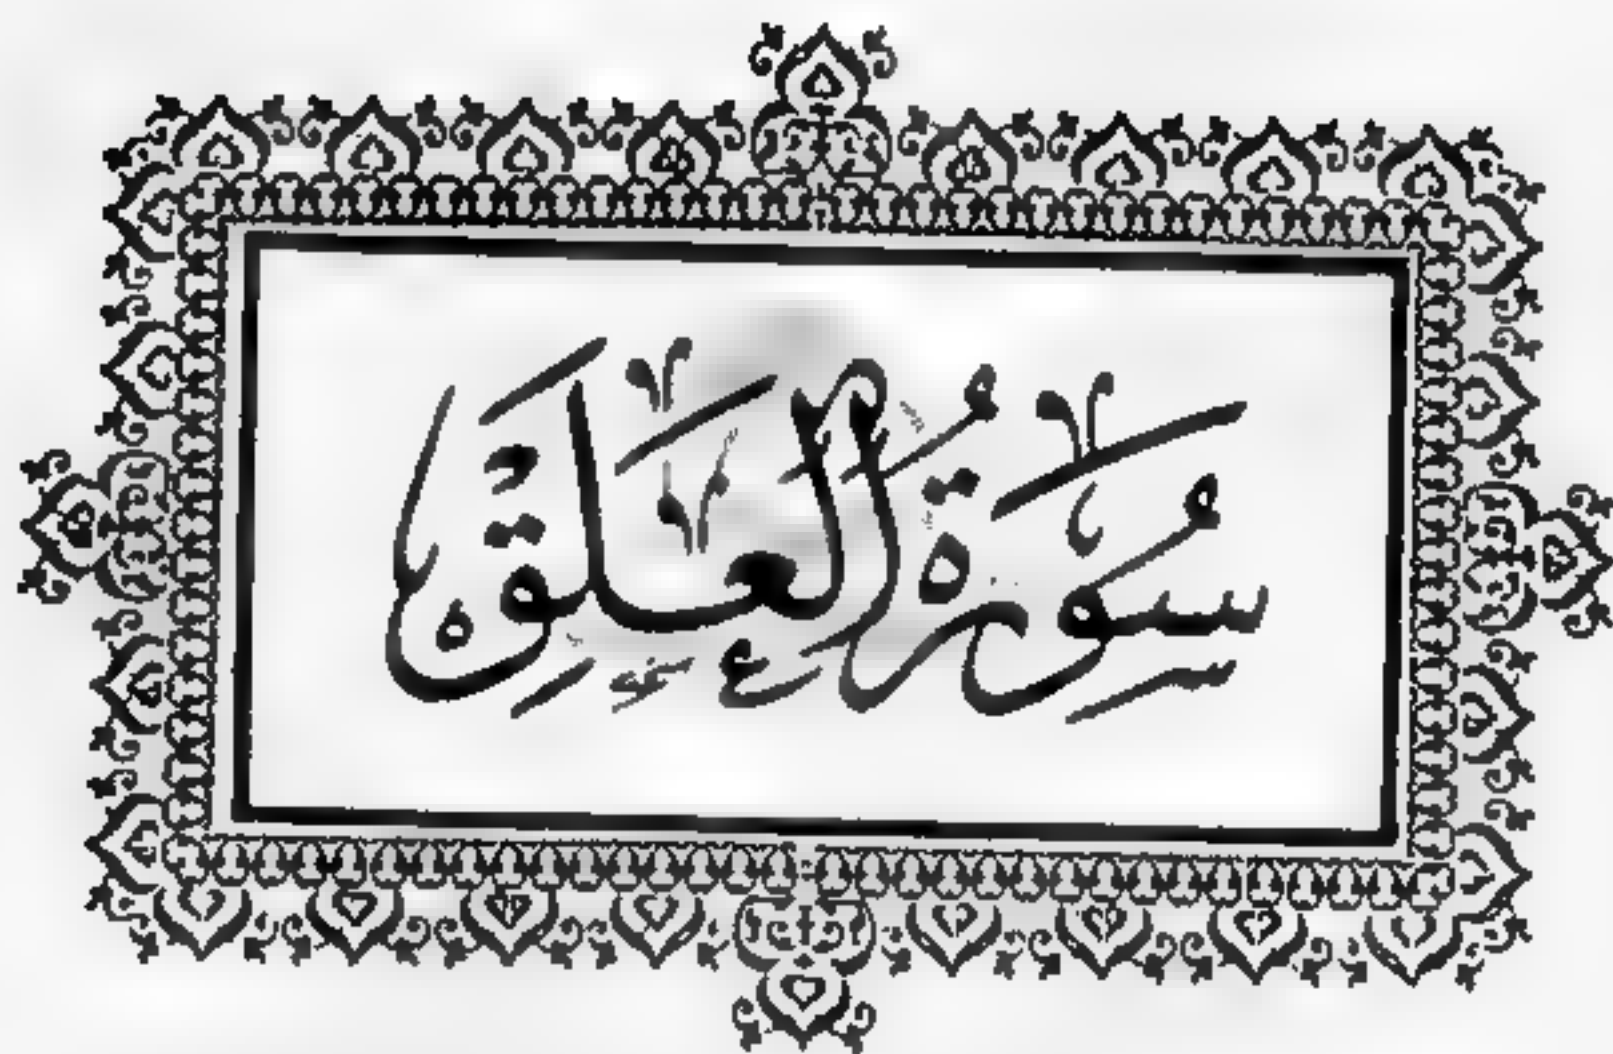 سُورَةُ الْعَلَقِ